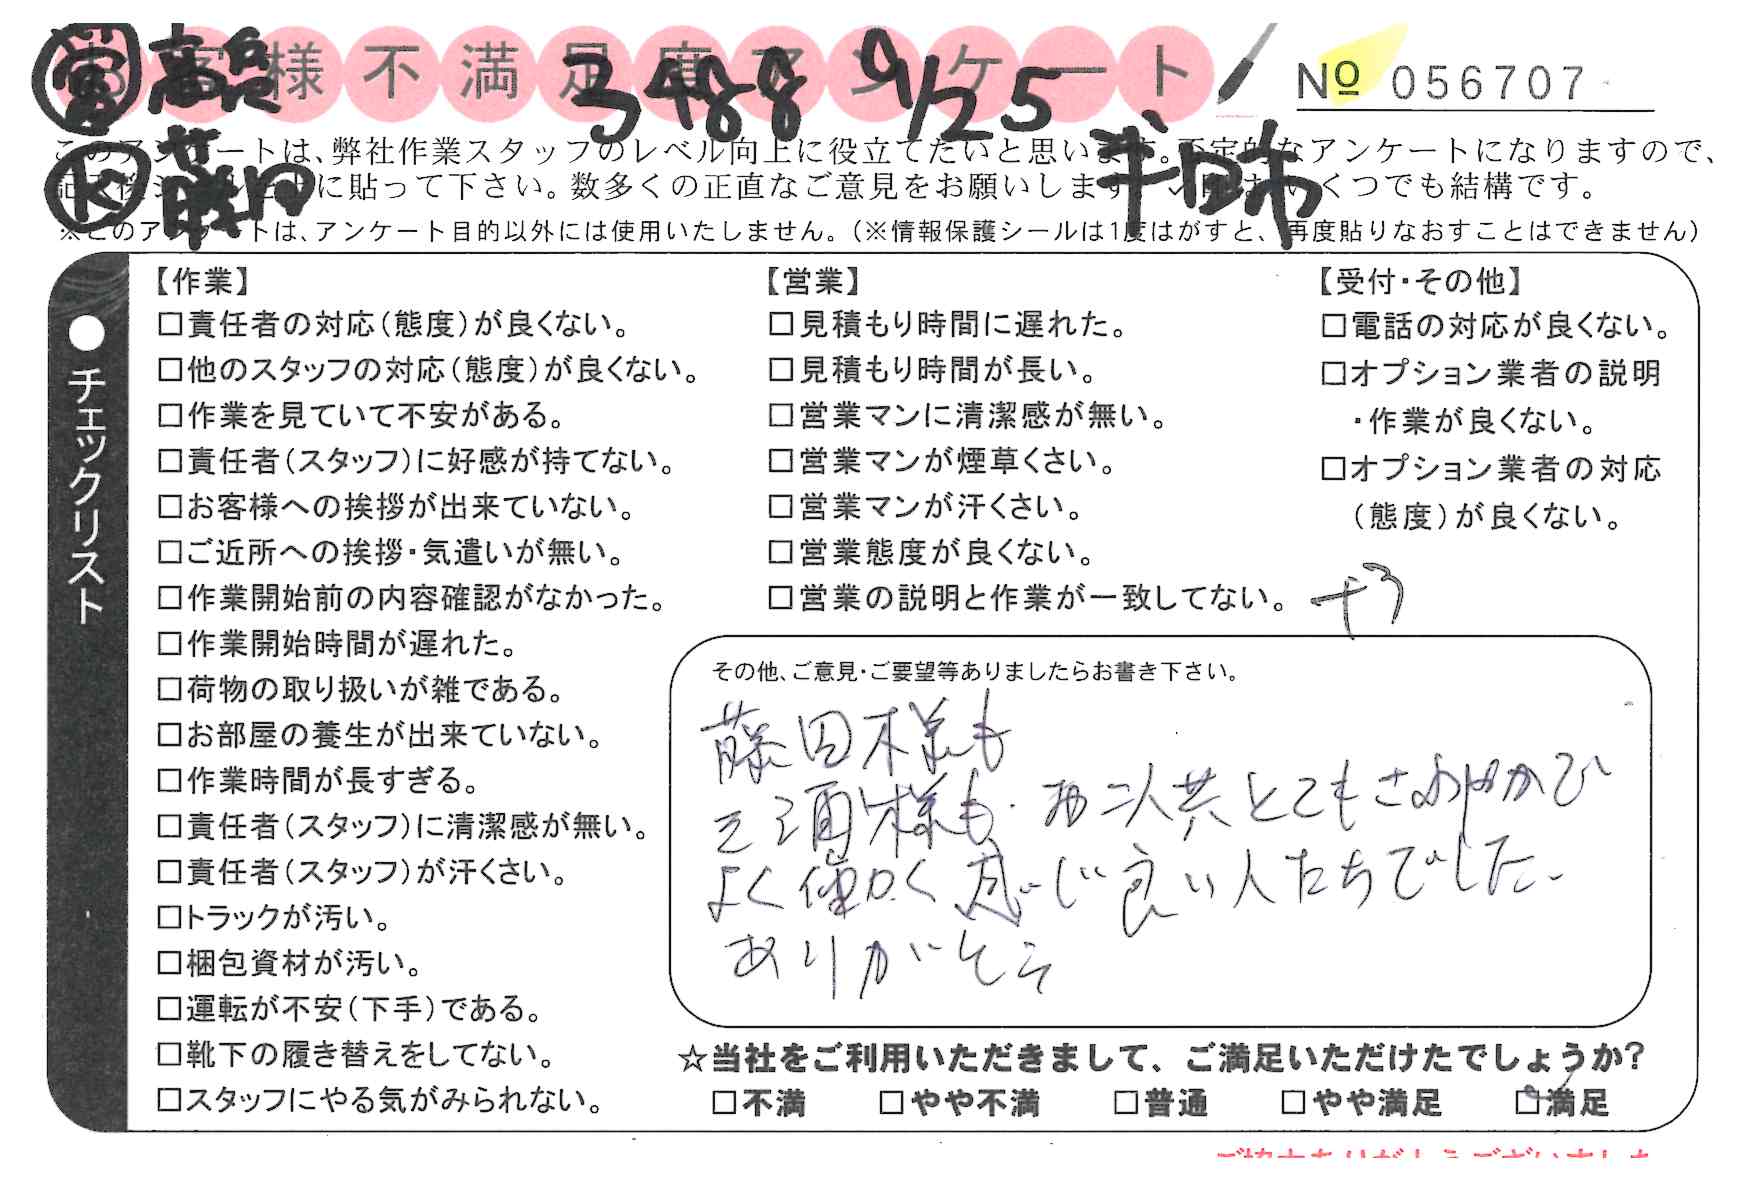 お客様不満足度アンケート
No 056707
営 高倉 3488 9/25
このアンケートは、弊社作業スタッフのレベル向上に役立てたいと思います。否定的なアンケートになりますので、
K 藤田
に貼って下さい。数多くの正直なご意見をお願いします くつでも結構です。
※このアンケートは、アンケート目的以外には使用いたしません。(※情報保護シールは1度はがすと、再度貼りなおすことはできません)
●チェックリスト
【作業】
□責任者の対応(態度)が良くない。
□他のスタッフの対応(態度)が良くない。
□作業を見ていて不安がある。
□責任者(スタッフ)に好感が持てない。
□お客様への挨拶が出来ていない。
□ご近所への挨拶・気遣いが無い。
□作業開始前の内容確認がなかった。
□作業開始時間が遅れた。
□荷物の取り扱いが雑である。
□お部屋の養生が出来ていない。
□作業時間が長すぎる。
□責任者(スタッフ)に清潔感が無い。
□責任者(スタッフ)が汗くさい。
□トラックが汚い。
□梱包資材が汚い。
□運転が不安(下手)である。
□靴下の履き替えをしてない。
□スタッフにやる気がみられない。
【営業】
□見積もり時間に遅れた。
□見積もり時間が長い。
□営業マンに清潔感が無い。
□営業マンが煙草くさい。
□営業マンが汗くさい。
□営業態度が良くない。
□営業の説明と作業が一致してない。
+3
【受付・その他】
□電話の対応が良くない。
□オプション業者の説明
・作業が良くない。
□オプション業者の対応
(態度)が良くない。
その他、ご意見・ご要望等ありましたらお書き下さい。
藤田様も
三酒様も、お二人共とてもさわやかで
よく働かく感じ良い人たちでした。
ありがとう
☆当社をご利用いただきまして、ご満足いただけたでしょうか?
□不満 □やや不満 □普通 □やや満足 □満足
ご協力ありがとうございました